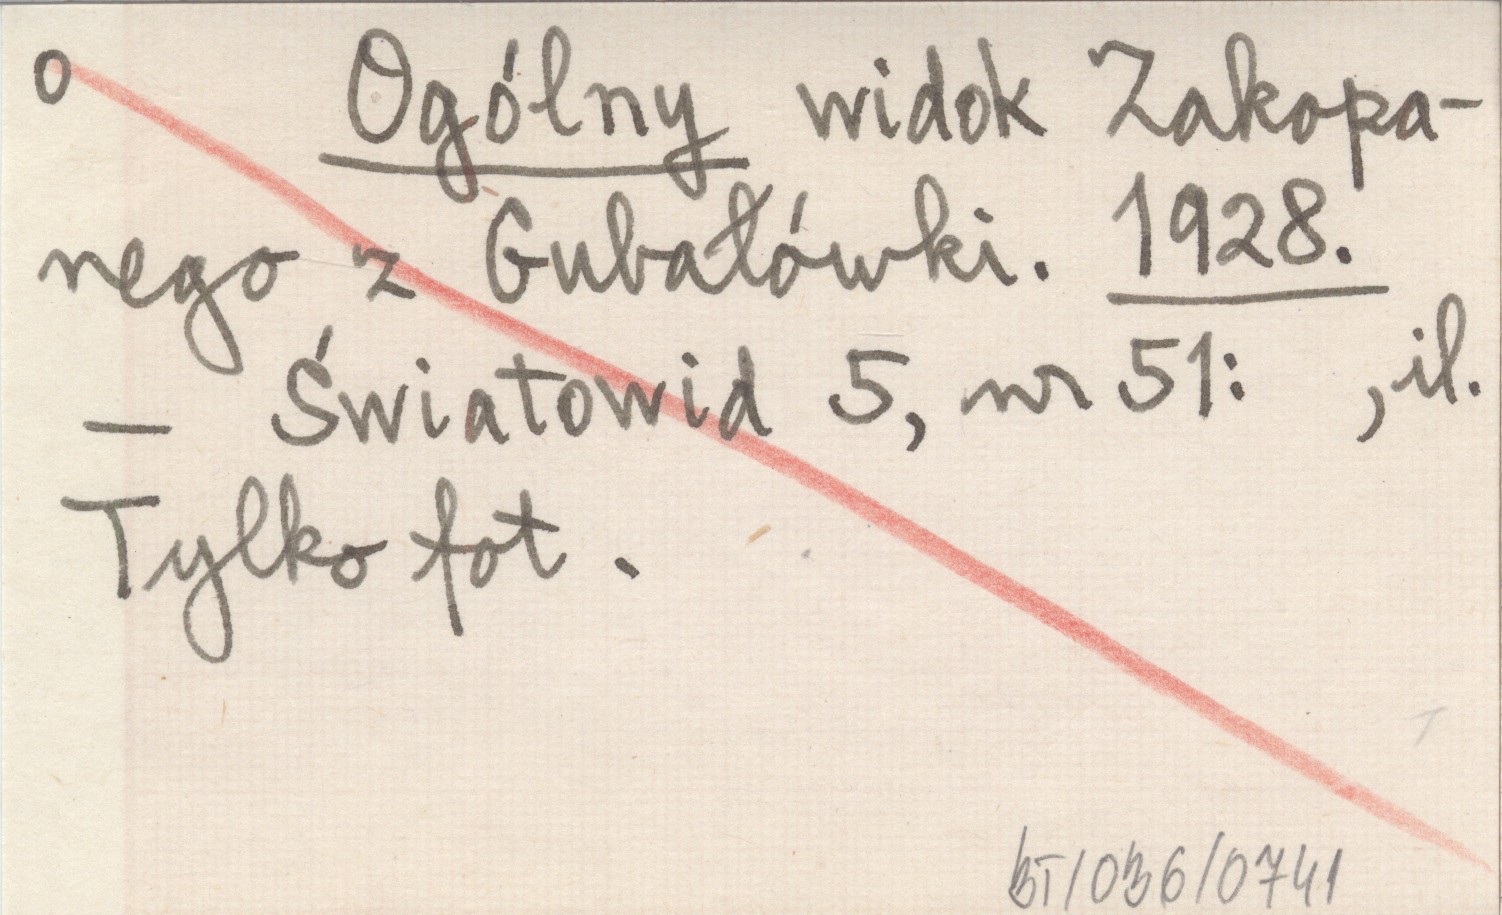 o Ogólny widok Zakopa-
nego z Gubałówki. 1928.
– Światowid 5, nr 51: , il.
Tylko fot.
BT/036/0741